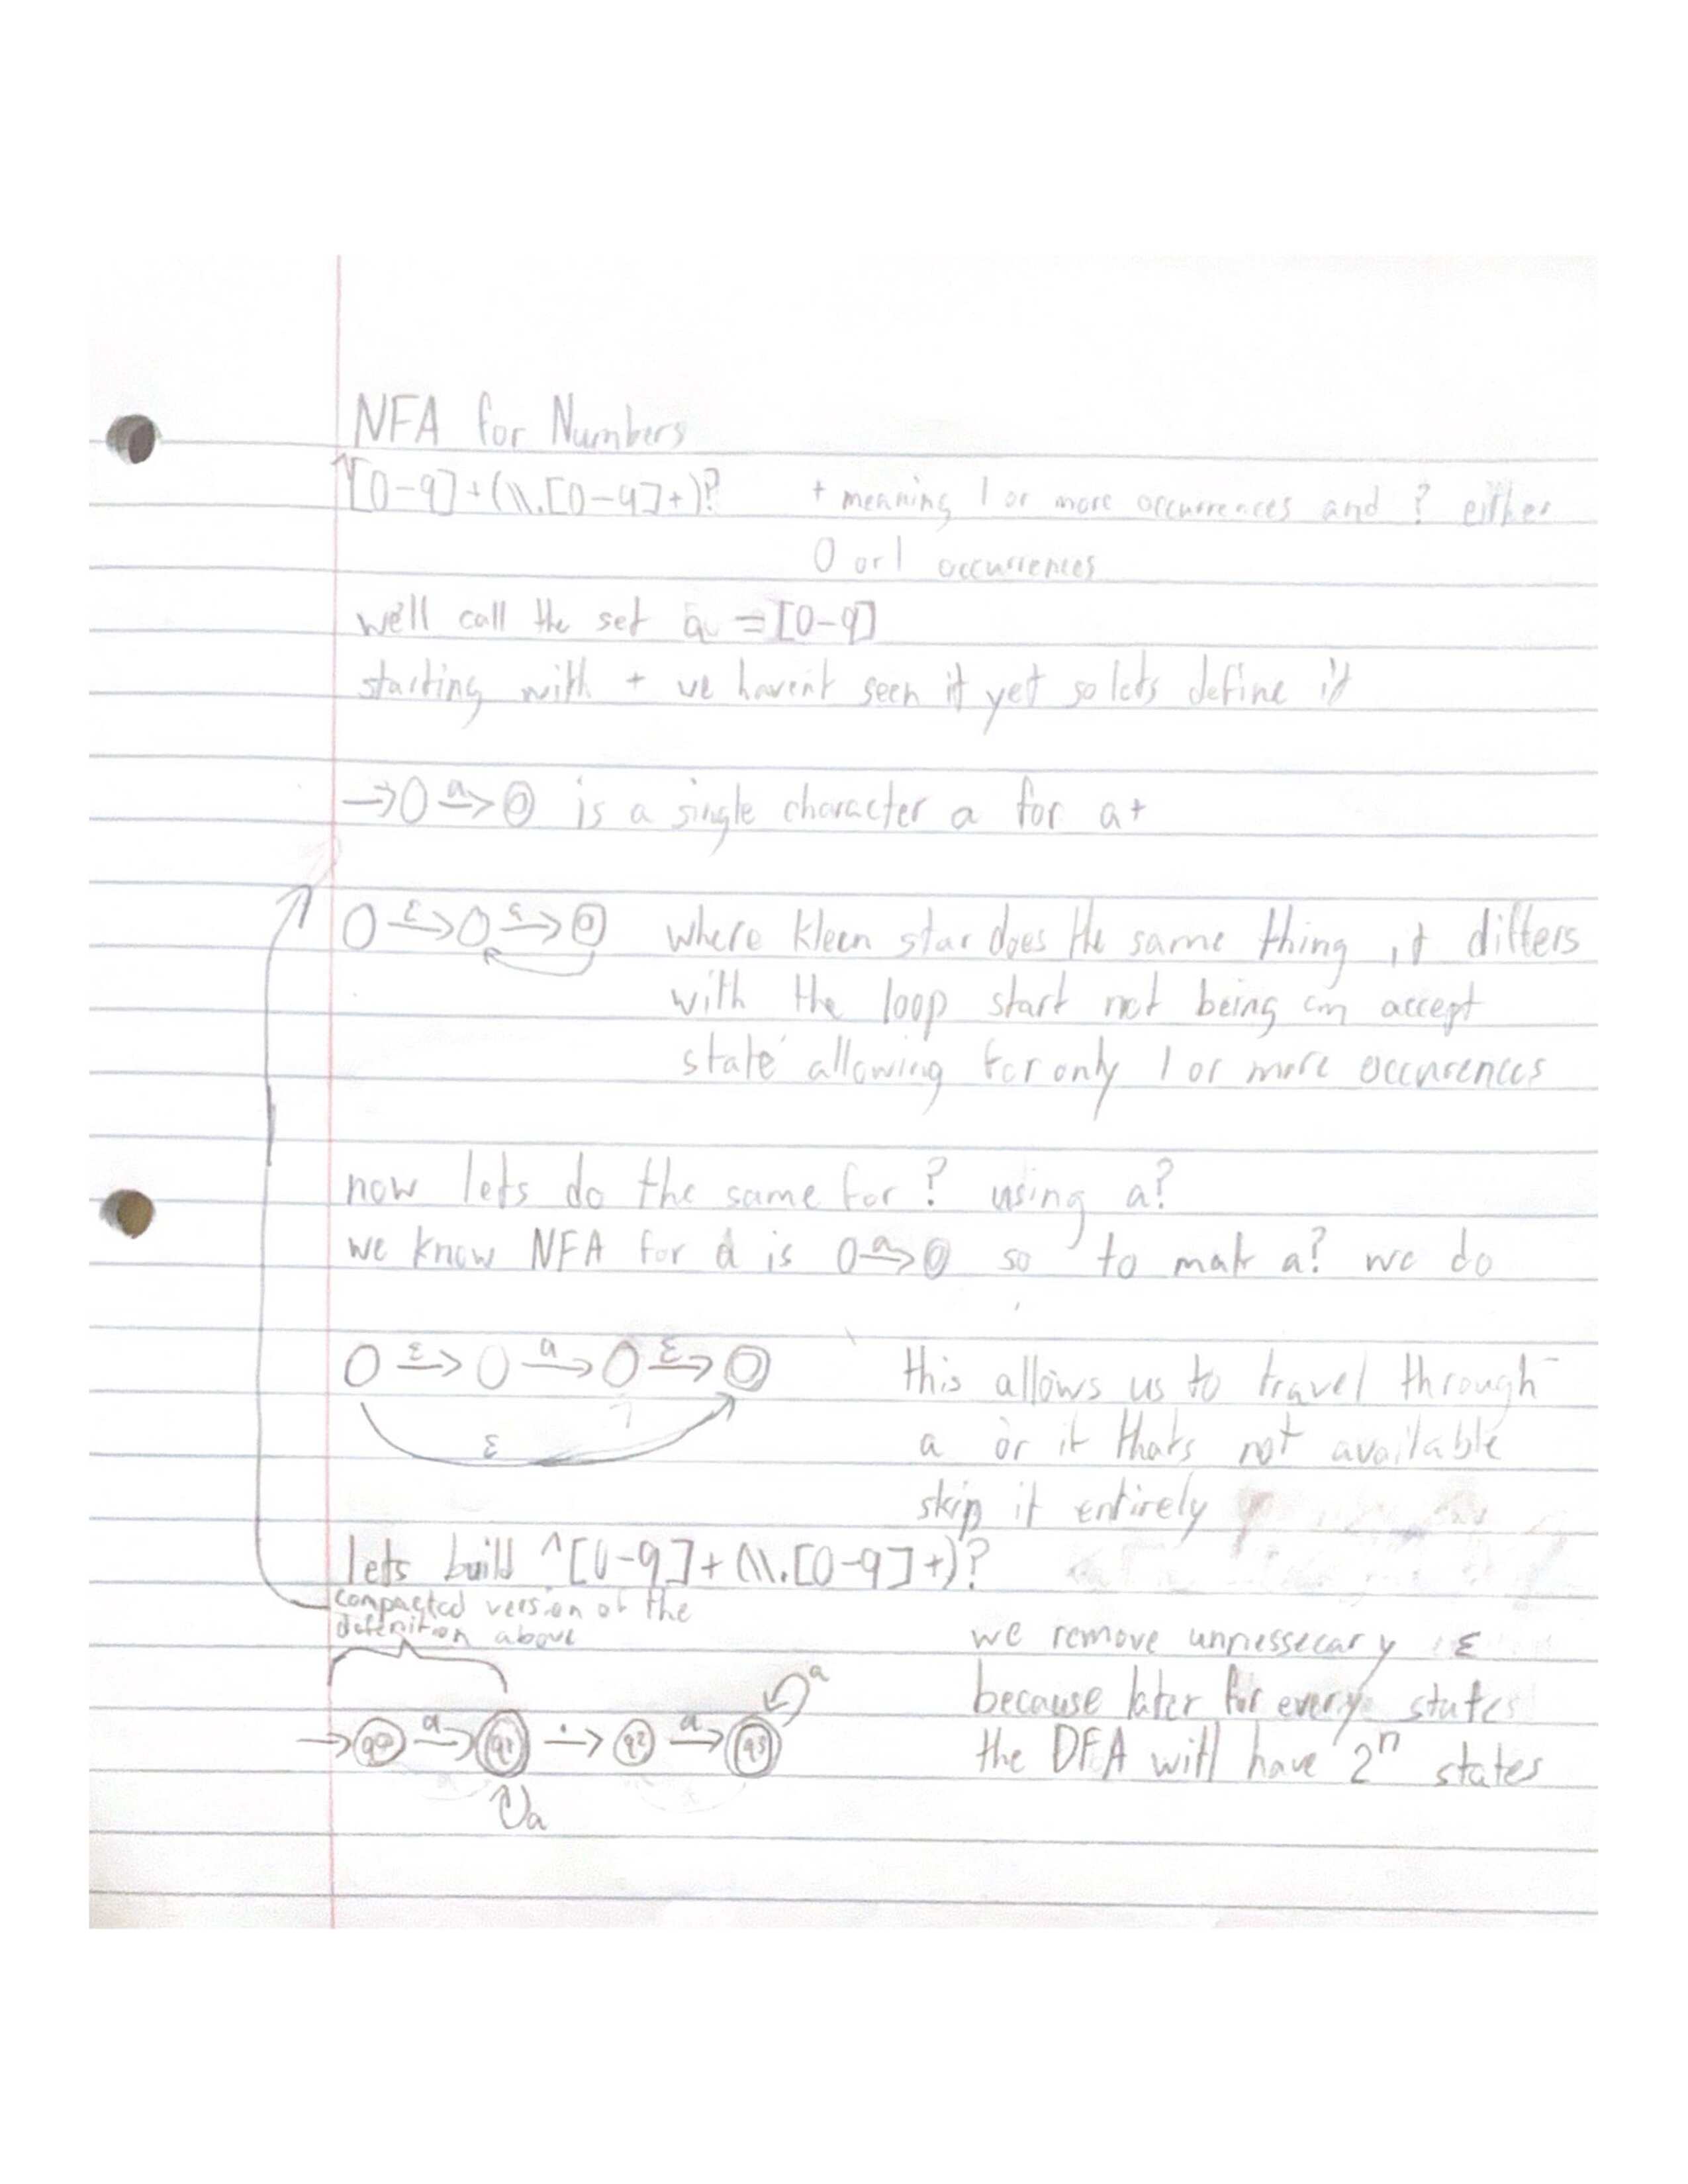 NFA for Numbers
^[0-9]+(\\.[0-9]+)? + meaning 1 or more occurrences and ? either
0 or 1 occurrences
we'll call the set a = [0-9]
starting with + we haven't seen it yet so lets define it
→O a→ O is a single character a for a+
O ε→ O a→ O where kleen star does the same thing, it differs
with the loop start not being an accept
state allowing for only 1 or more occurences
now lets do the same for ? using a?
we know NFA for a is O a→ O so to mak a? we do
O ε→ O a→ O ε→ O this allows us to travel through
ε a or if thats not available
skip it entirely
lets build ^[0-9]+(\\.[0-9]+)?
compacted version of the
defenition above
we remove unnessecary ε
because later for every state
a
→ q0 a→ q1 .→ q2 a→ q3 the DFA will have 2^n states
a